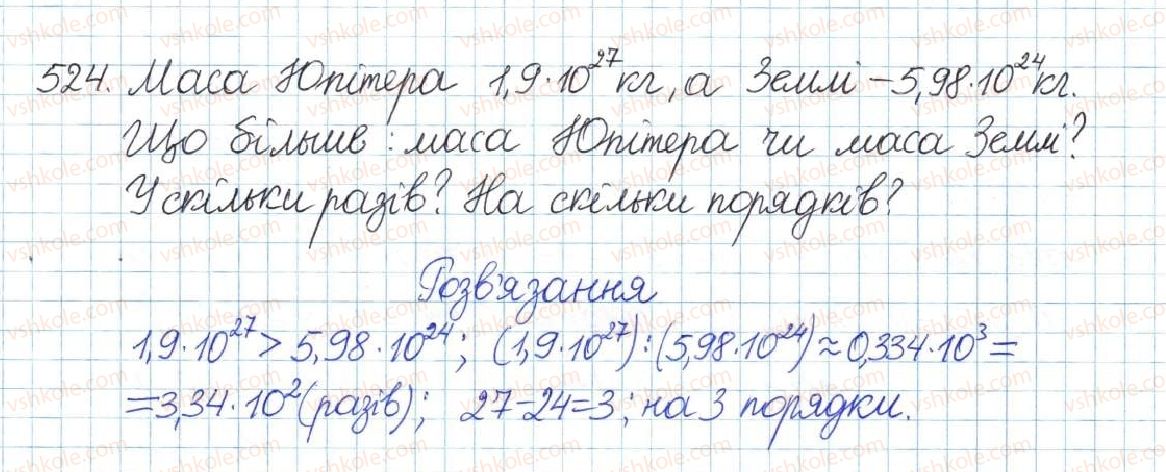 524. Маса Юпітера 1,9·10²⁷ кг, а Землі – 5,98·10²⁴ кг.
Що більше: маса Юпітера чи маса Землі?
У скільки разів? На скільки порядків?
Розв'язання
1,9·10²⁷ > 5,98·10²⁴; (1,9·10²⁷):(5,98·10²⁴) ≈ 0,334·10³ =
= 3,34·10² (разів); 27-24=3; на 3 порядки.